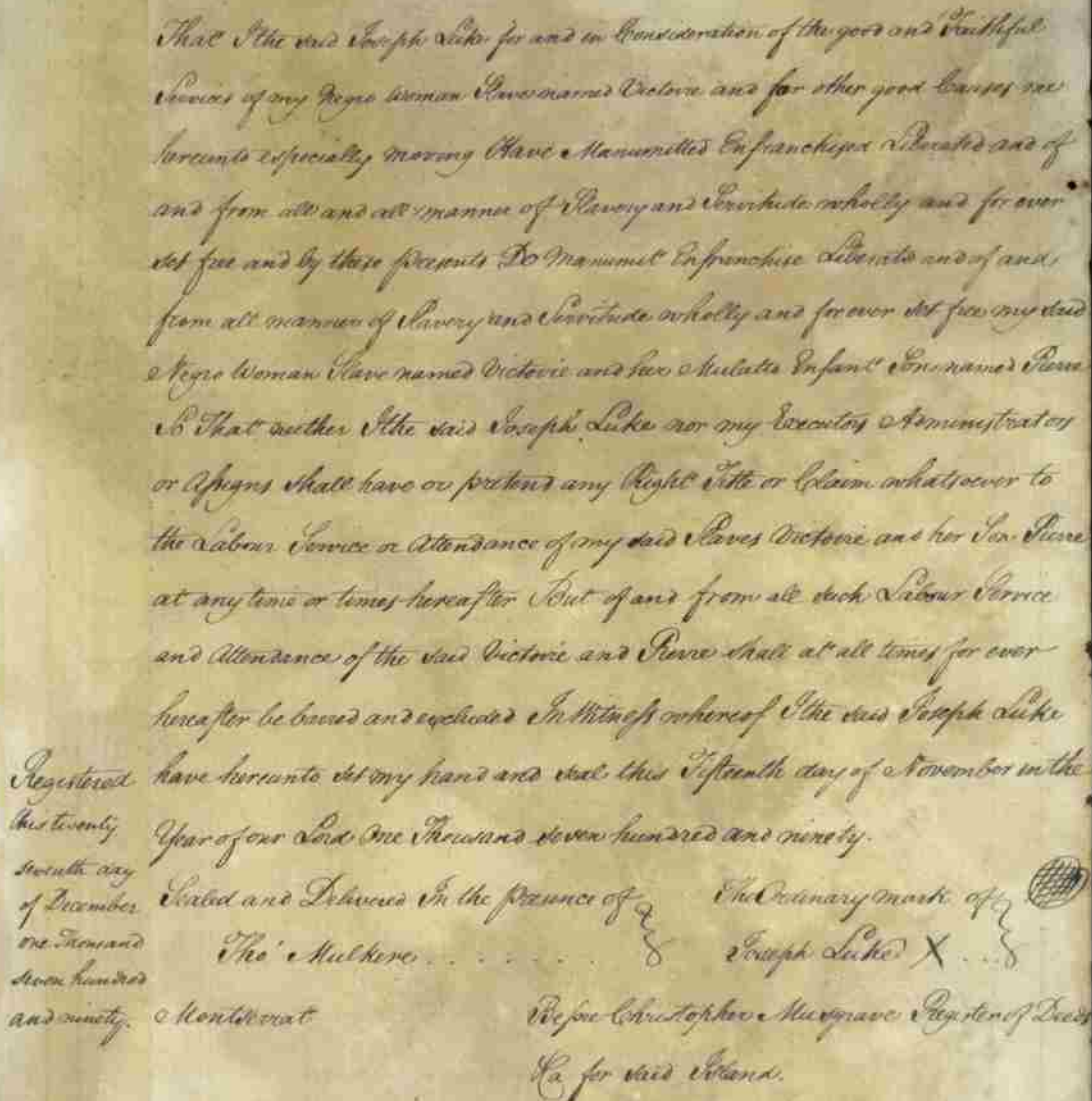 That I the said Joseph Luke for and in Consideration of the good and Faithful
Services of my Negro Woman Slave named Victoire and for other good Causes me
hereunto especially moving Have Manumitted Enfranchised Liberated and of
and from all and all manner of Slavery and Servitude wholly and for ever
set free and by these presents Do Manumit Enfranchise Liberate and of and
from all manner of Slavery and Servitude wholly and for ever set free my said
Negro Woman Slave named Victoire and her Mulatto Enfant Son named Pierre
So That neither I the said Joseph Luke nor my Executors Administrators
or Assigns shall have or pretend any Right Title or Claim whatsoever to
the Labour Service or Attendance of my said Slaves Victoire and her Son Pierre
at any time or times hereafter But of and from all such Labour Service
and Attendance of the said Victoire and Pierre shall at all times for ever
hereafter be barred and excluded In Witness whereof I the said Joseph Luke
have hereunto set my hand and seal this Fifteenth day of November in the
Year of our Lord One Thousand seven hundred and ninety.
Registered
this twenty
seventh day
of December
one Thousand
seven hundred
and ninety.
Sealed and Delivered In the presence of
Tho' Mulkere
The Ordinary mark of
Joseph Luke X
Montserrat
Before Christopher Musgrave Register of Deeds
&a for said Island.